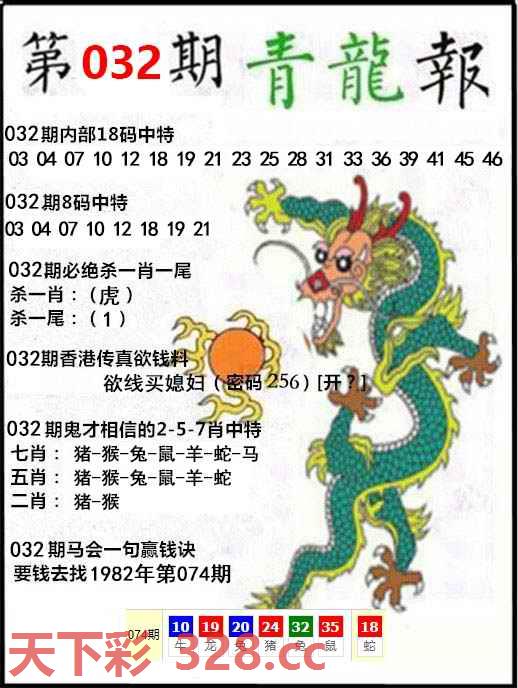 第032期青龍報
032期内部18码中特
03 04 07 10 12 18 19 21 23 25 28 31 33 36 39 41 45 46
032期8码中特
03 04 07 10 12 18 19 21
032期必绝杀一肖一尾
杀一肖：（虎）
杀一尾：（1）
032期香港传真欲钱料
欲线买媳妇（密码256）[开？]
032期鬼才相信的2-5-7肖中特
七肖： 猪-猴-兔-鼠-羊-蛇-马
五肖： 猪-猴-兔-鼠-羊-蛇
二肖： 猪-猴
032期马会一句赢钱诀
要钱去找1982年第074期
074期 10 19 20 24 32 35 18
牛 龙 兔 猪 兔 鼠 蛇
天下彩 328.cc